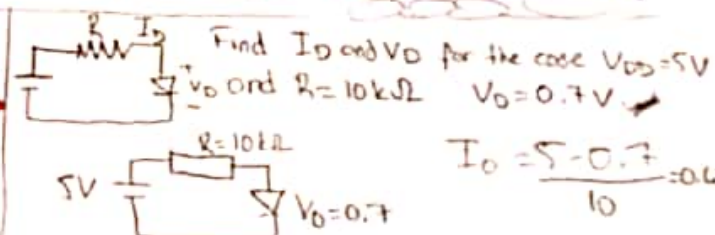 R I_D
Find I_D and V_D for the case V_DD=5V
+ V_D - and R=10kΩ V_D=0.7V
R=10kΩ
5V
V_D=0.7
I_D = 5-0.7 / 10 =0.4